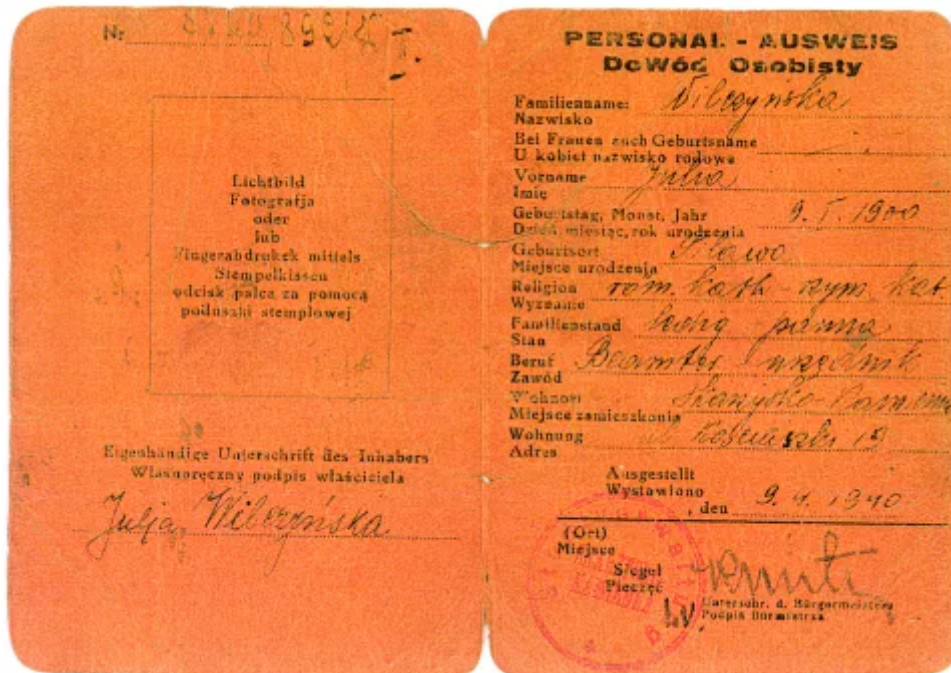 Nr
Lichtbild
Fotografja
oder
lub
Fingerabdrukek mittels
Stempelkissen
odcisk palca za pomocą
poduszki stemplowej
Eigenhändige Unterschrift des Inhabers
Własnoręczny podpis właściciela
Julja Wilczyńska
PERSONAL - AUSWEIS
DoWód Osobisty
Familienname: Wilczyńska
Nazwisko
Bei Frauen auch Geburtsname
U kobiet nazwisko rodowe
Vorname Julia
Imię
Geburtstag, Monat, Jahr 9. I. 1900
Dzień, miesiąc, rok urodzenia
Geburtsort
Miejsce urodzenia
Religion röm. kath - rzym kat
Wyznanie
Familienstand ledig panna
Stan
Beruf Beamter urzędnik
Zawód
Wohnort Skarżysko-Kamienna
Miejsce zamieszkania
Wohnung ul Kościuszki
Adres
Ausgestellt
Wystawiono
, den 1940
(Ort)
Miejsce
Siegel
Pieczęć
Unterschr. d. Bürgermeisters
Podpis Burmistrza